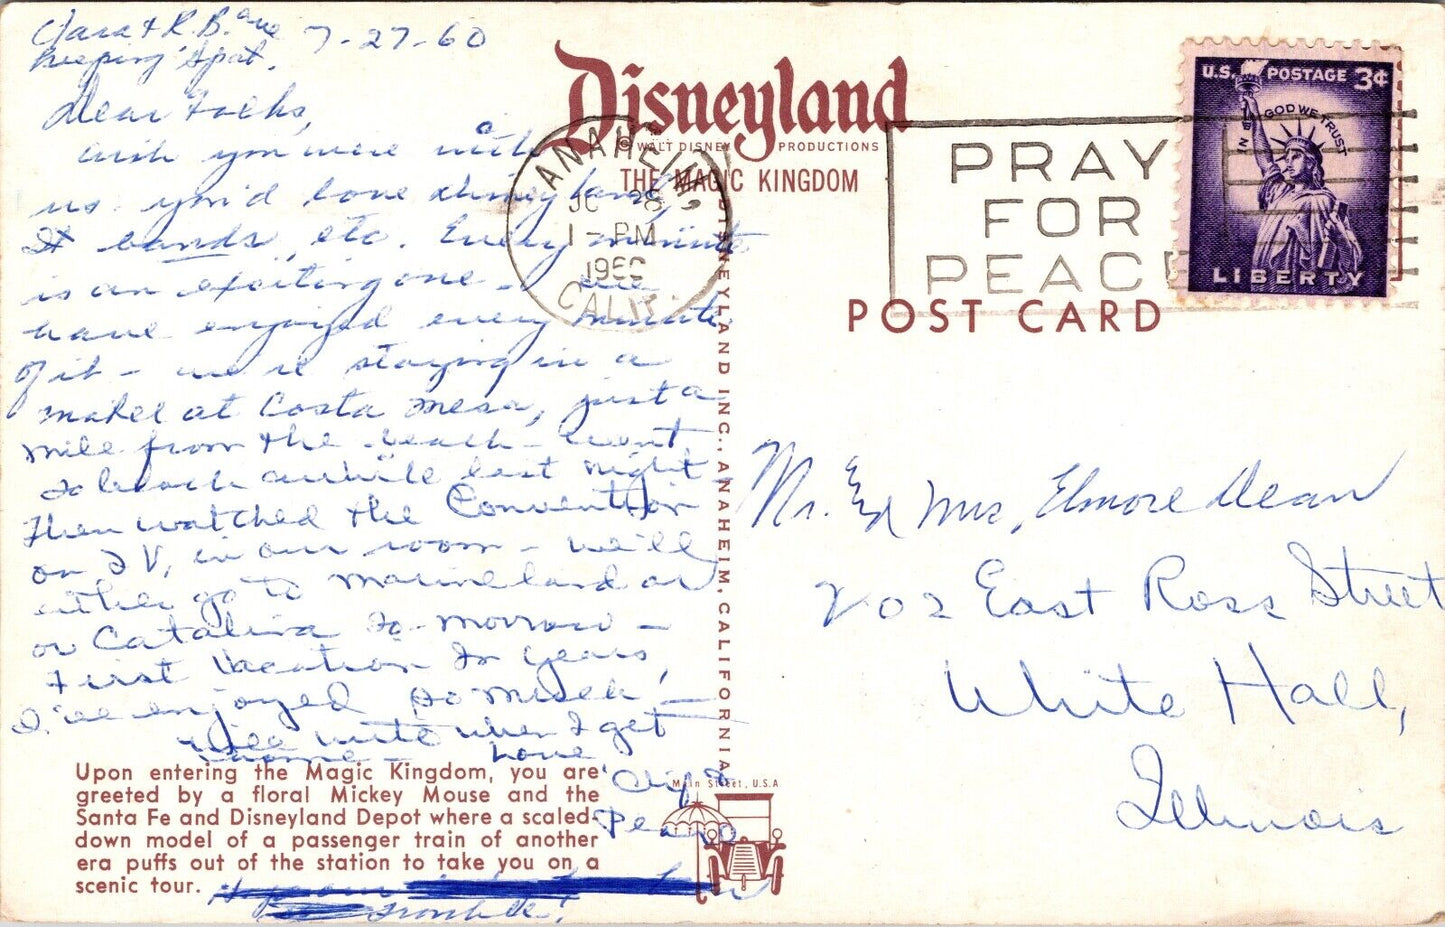 Clara & R.B. are 7-27-60
keeping Spot.
Dear Folks,
wish you were with
us. you'd love disneyland,
It bands, etc. Every minute
is an exciting one - we
have enjoyed every minute
of it - we're staying in a
motel at Costa Mesa, just a
mile from the beach - went
to beach awhile last night
Then watched the Convention
on TV, in our room - we'll
either go to Marineland or
or Catalina to-morrow -
First Vacation In years,
I've enjoyed so much -
Will write when I get
home - Love
trouble!
Disneyland
© WALT DISNEY PRODUCTIONS
THE MAGIC KINGDOM
POST CARD
ANAHEIM,
1 - PM
CALIF.
PRAY
FOR
PEACE
U.S. POSTAGE 3¢
IN GOD WE TRUST
LIBERTY
DISNEYLAND INC., ANAHEIM, CALIFORNIA
Mr. End Mrs, Elmore Dean
202 East Ross Street
White Hall,
Illinois
Upon entering the Magic Kingdom, you are
greeted by a floral Mickey Mouse and the
Santa Fe and Disneyland Depot where a scaled-
down model of a passenger train of another
era puffs out of the station to take you on a
scenic tour.
Main Street, U.S.A.